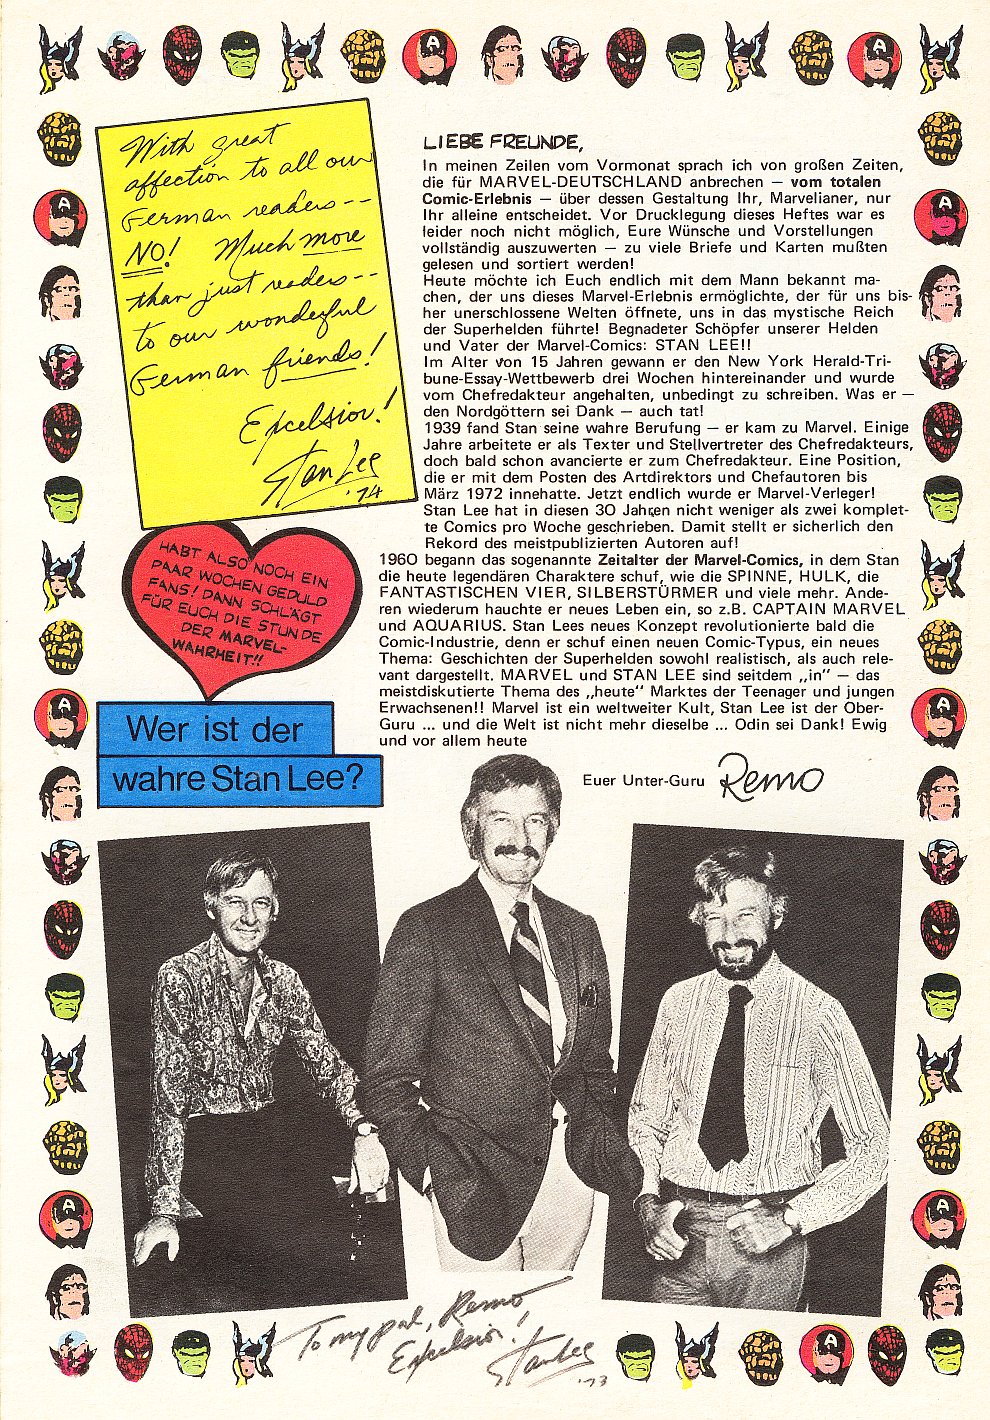 With great
affection to all our
German readers--
NO! Much more
than just readers--
to our wonderful
German friends!
Excelsior!
Stan Lee
'74
LIEBE FREUNDE,
In meinen Zeilen vom Vormonat sprach ich von großen Zeiten,
die für MARVEL-DEUTSCHLAND anbrechen — vom totalen
Comic-Erlebnis — über dessen Gestaltung Ihr, Marvelianer, nur
Ihr alleine entscheidet. Vor Drucklegung dieses Heftes war es
leider noch nicht möglich, Eure Wünsche und Vorstellungen
vollständig auszuwerten — zu viele Briefe und Karten mußten
gelesen und sortiert werden!
Heute möchte ich Euch endlich mit dem Mann bekannt ma-
chen, der uns dieses Marvel-Erlebnis ermöglichte, der für uns bis-
her unerschlossene Welten öffnete, uns in das mystische Reich
der Superhelden führte! Begnadeter Schöpfer unserer Helden
und Vater der Marvel-Comics: STAN LEE!!
Im Alter von 15 Jahren gewann er den New York Herald-Tri-
bune-Essay-Wettbewerb drei Wochen hintereinander und wurde
vom Chefredakteur angehalten, unbedingt zu schreiben. Was er —
den Nordgöttern sei Dank — auch tat!
1939 fand Stan seine wahre Berufung — er kam zu Marvel. Einige
Jahre arbeitete er als Texter und Stellvertreter des Chefredakteurs,
doch bald schon avancierte er zum Chefredakteur. Eine Position,
die er mit dem Posten des Artdirektors und Chefautoren bis
März 1972 innehatte. Jetzt endlich wurde er Marvel-Verleger!
Stan Lee hat in diesen 30 Jahren nicht weniger als zwei komplet-
te Comics pro Woche geschrieben. Damit stellt er sicherlich den
Rekord des meistpublizierten Autoren auf!
1960 begann das sogenannte Zeitalter der Marvel-Comics, in dem Stan
die heute legendären Charaktere schuf, wie die SPINNE, HULK, die
FANTASTISCHEN VIER, SILBERSTÜRMER und viele mehr. Ande-
ren wiederum hauchte er neues Leben ein, so z.B. CAPTAIN MARVEL
und AQUARIUS. Stan Lees neues Konzept revolutionierte bald die
Comic-Industrie, denn er schuf einen neuen Comic-Typus, ein neues
Thema: Geschichten der Superhelden sowohl realistisch, als auch rele-
vant dargestellt. MARVEL und STAN LEE sind seitdem „in“ — das
meistdiskutierte Thema des „heute“ Marktes der Teenager und jungen
Erwachsenen!! Marvel ist ein weltweiter Kult, Stan Lee ist der Ober-
Guru ... und die Welt ist nicht mehr dieselbe ... Odin sei Dank! Ewig
und vor allem heute
Euer Unter-Guru Remo
HABT ALSO NOCH EIN
PAAR WOCHEN GEDULD
FANS! DANN SCHLÄGT
FÜR EUCH DIE STUNDE
DER MARVEL-
WAHRHEIT!!
Wer ist der
wahre Stan Lee?
To my pal, Remo
Excelsior!
Stan Lee
'73